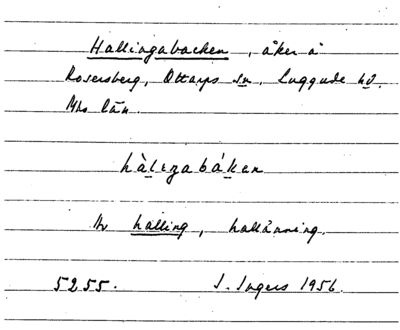 Hallingabacken, åker å
Rosersberg, Ottarps sn, Luggude hd.
Mhs län.
hàlıŋabákan
Av halling, hallänning.
5255. I. Ingers 1956.